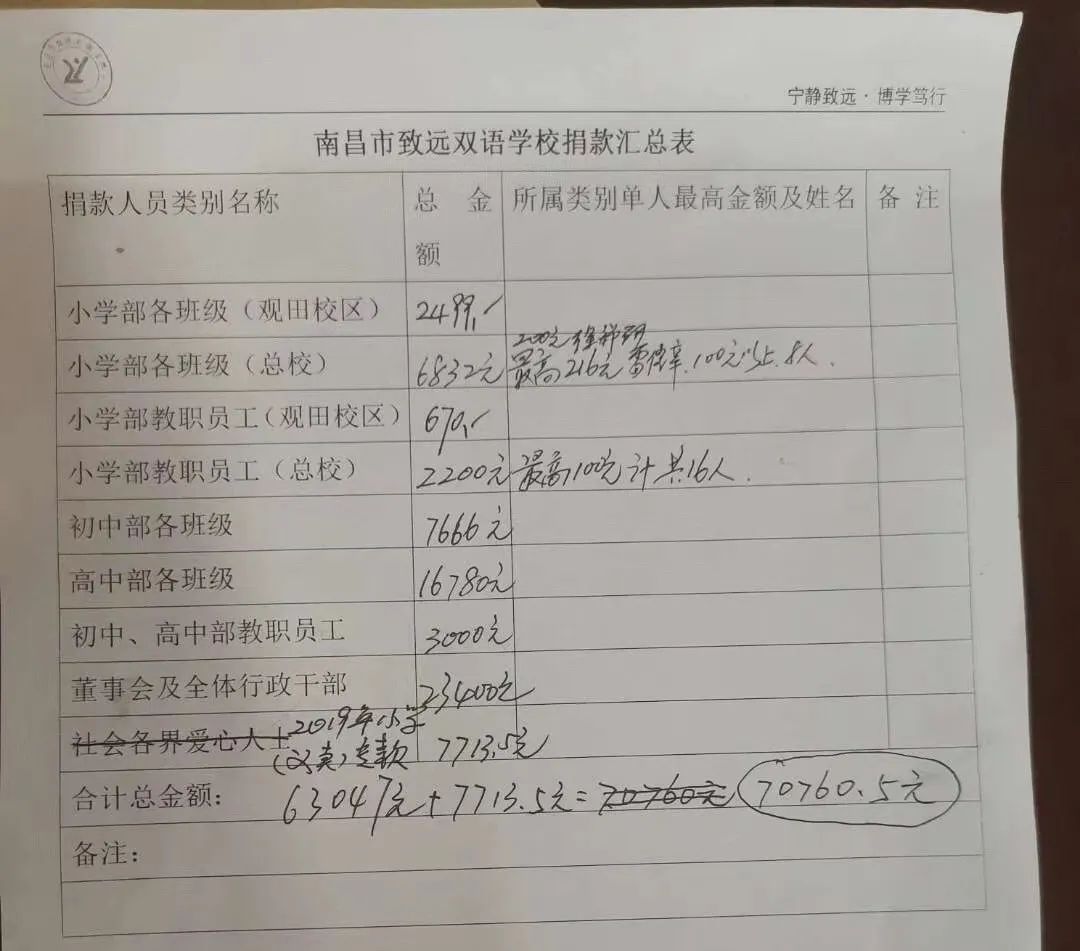 宁静致远·博学笃行
南昌市致远双语学校捐款汇总表
捐款人员类别名称 总金额 所属类别单人最高金额及姓名 备注
小学部各班级（观田校区） 2499,-
200元
小学部各班级（总校） 6832元 最高216元 雷 100元以上 8人.
小学部教职员工（观田校区） 670,-
小学部教职员工（总校） 2200元 最高100元 计共16人.
初中部各班级 7666元
高中部各班级 16780元
初中、高中部教职员工 3000元
董事会及全体行政干部 23400元
社会各界爱心人士 2019年小学
(义卖)专款 7713.5元
合计总金额: 63047元+7713.5元=70760元 70760.5元
备注: